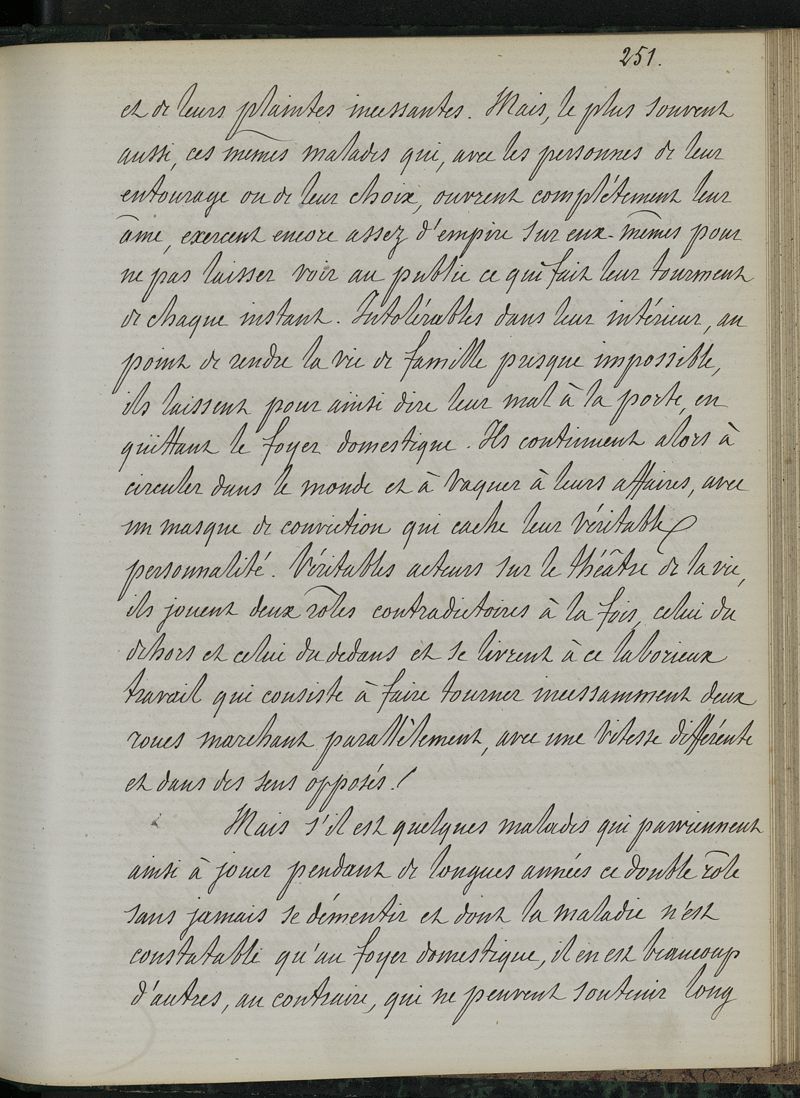 251.
et de leurs plaintes incessantes. Mais, le plus souvent
aussi, ces mêmes malades qui, avec les personnes de leur
entourage ou de leur choix, ouvrent complétement leur
âme, exercent encore assez d'empire sur eux-mêmes pour
ne pas laisser voir au public ce qui fait leur tourment
de chaque instant. Intolérables dans leur intérieur, au
point de rendre la vie de famille presque impossible,
ils laissent pour ainsi dire leur mal à la porte, en
quittant le foyer domestique. Ils continuent alors à
circuler dans le monde et à vaquer à leurs affaires, avec
un masque de conviction qui cache leur véritable
personnalité. Véritables acteurs sur le théâtre de la vie,
ils jouent deux rôles contradictoires à la fois, celui du
dehors et celui du dedans et se livrent à ce laborieux
travail qui consiste à faire tourner incessamment deux
roues marchant parallèlement, avec une vitesse différente
et dans des sens opposés!
Mais s'il est quelques malades qui parviennent
ainsi à jouer pendant de longues années ce double rôle
sans jamais se démentir et dont la maladie n'est
constatable qu'au foyer domestique, il en est beaucoup
d'autres, au contraire, qui ne peuvent soutenir long